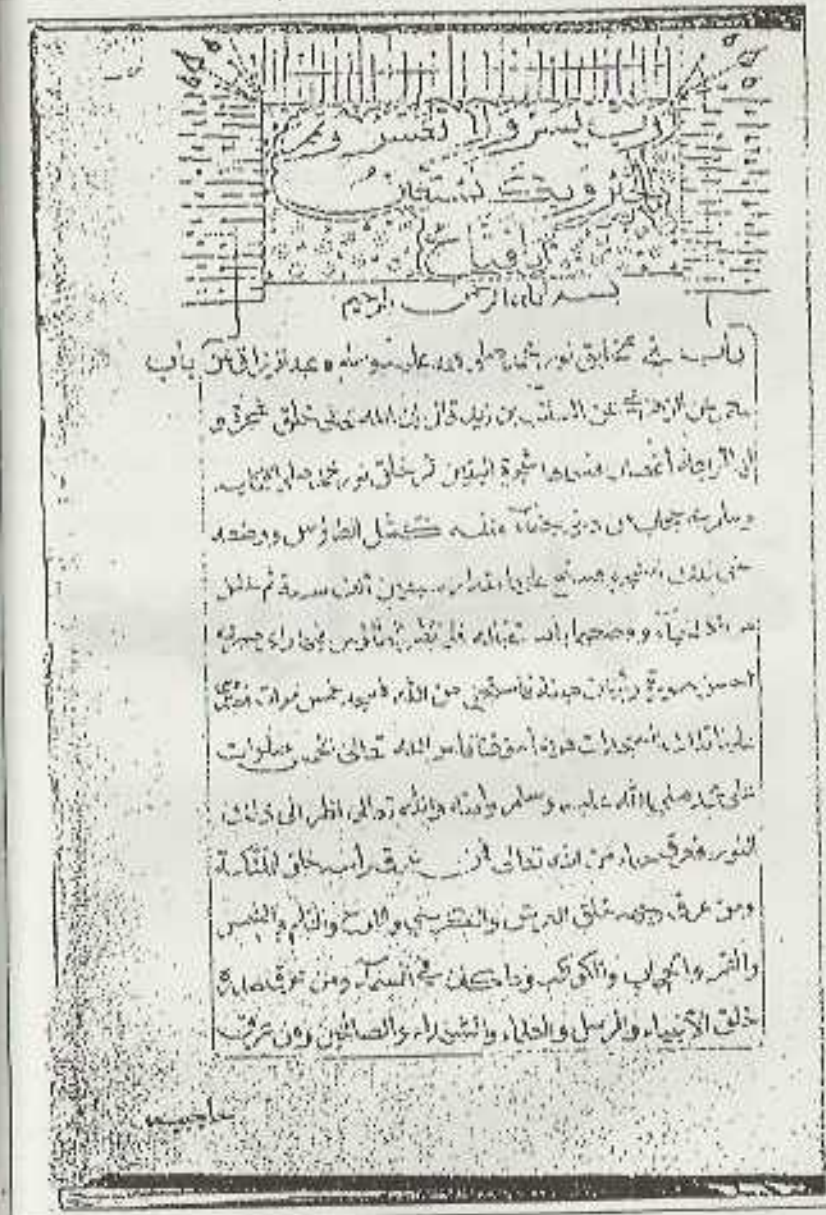 رب يسر ولا تعسر وتمم
بالخير وبك نستعين
يا فتاح
بسم الله الرحمن الرحيم
باب في تخليق نور محمد صلى الله عليه وسلم عبد الرزاق عن
عن الزهري عن السائب بن زيد قال إن الله تعالى خلق شجرة و
لها أربعة أغصان فسماها شجرة اليقين ثم خلق نور محمد صلى الله عليه
وسلم في حجاب من درة بيضاء مثله كمثل الطاؤس ووضعه
على تلك الشجرة فسبح عليها مقدار سبعين ألف سنة ثم خلق
مرآة الحياء ووضعها باستقباله فلما نظر الطاؤس فيها رأى صورته
أحسن صورة وزين هيئة فاستحيى من الله فسجد خمس مرات فصارت
علينا تلك السجدات فرضا موقتا فأمر الله تعالى بخمس صلوات
على محمد صلى الله عليه وسلم وأمته والله تعالى نظر إلى ذلك
النور فعرق حياء من الله تعالى فمن عرق رأسه خلق الملائكة
ومن عرق وجهه خلق العرش والكرسي واللوح والقلم والشمس
والقمر والحجاب والكواكب وما كان في السماء ومن عرق صدره
خلق الأنبياء والرسل والعلماء والشهداء والصالحين ومن عرق
حاجبيه